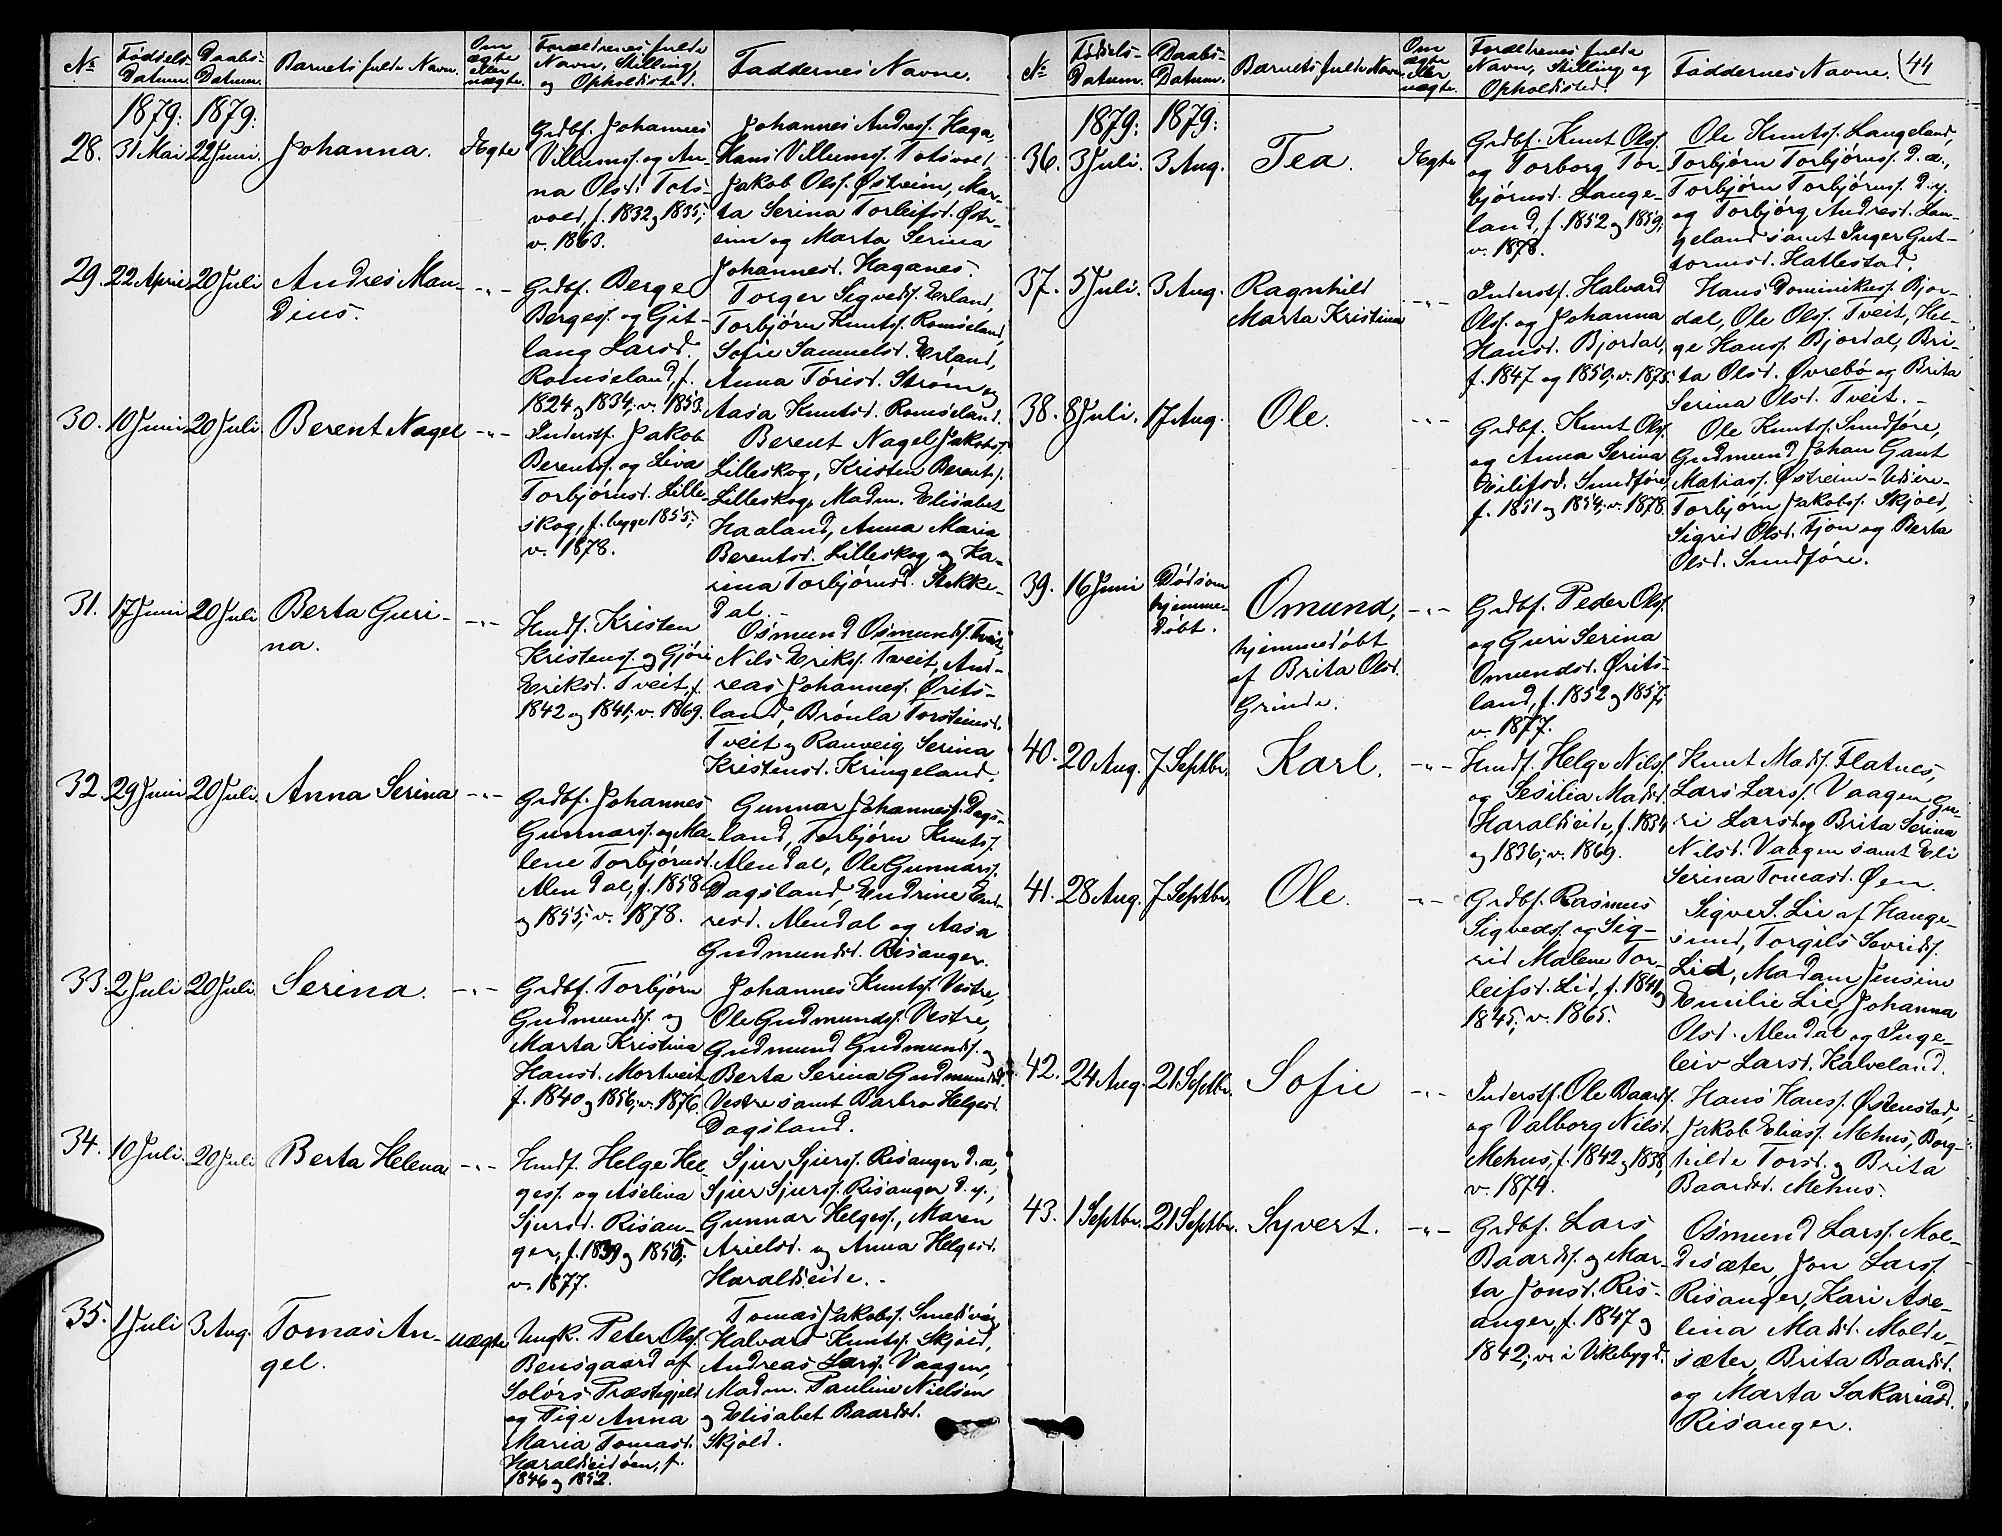 No
Fødsels-
Datum.
Daabs-
Datum.
Barnets fulde Navn.
Om
ægte
eller
uægte.
Forældrenes fulde
Navn, Stilling
og Opholdssted.
Faddernes Navne.
1879: 1879:
28. 31 Mai 22 Juni. Johanna. Ægte
Grdbf. Johannes
Villumss. og An-
na Olsd. Tots-
vold, f. 1832 og 1835;
v. 1863.
Johannes Andress. Haga,
Hans Villumss. Totsvold,
Jakob Olss. Østreim, Mar-
ta Serina Torleifsd. Øst-
reim og Marta Serina
Johannesd. Haganes.
29. 22 April 20 Juli Andres Man-
dius.
-"-
Grdbf. Berge
Bergess. og Git-
laug Larsd.
Romseland, f.
1824 og 1834; v. 1853.
Torger Sigvedss. Erland,
Torbjørn Knutss. Romseland,
Sofie Samuelsd. Erland,
Anna Tørisd. Strøm og
Aasa Knutsd. Romseland.
30. 10 Juni 20 Juli. Berent Nagel -"-
Inderstf. Jakob
Berentss. og Liva
Torbjørnsd. Lille-
skog, f. begge 1855;
v. 1878.
Berent Nagel Jakobss.
Lilleskog, Kristen Berentss.
Lilleskog, Madm. Elisabet
Haaland, Anna Maria
Berentsd. Lilleskog og Ka-
rina Torbjørnsd. Stakke-
dal.
31. 17 Juni 20 Juli Berta Guri-
na.
-"-
Hmdf. Kristen
Kristenss. og Gjøri
Eriksd. Tveit, f.
1842 og 1841; v. 1869.
Osmund Osmundss. Tveit,
Nils Erikss. Tveit, And-
reas Johanness. Ørits-
land, Brønla Torsteinsd.
Tveit og Ranveig Serina
Kristensd. Kringeland.
32. 29 Juni 20 Juli. Anna Serina -"-
Grdbf. Johannes
Gunnarss. og Ma-
lene Torbjørnsd.
Alendal, f. 1858
og 1855; v. 1878.
Gunnar Johanness. Dags-
land, Torbjørn Knutss.
Alendal, Ole Gunnarss.
Dagsland, Endrine End-
resd. Alendal og Aasa
Gudmundsd. Risanger.
33. 2 Juli 20 Juli. Serina. -"-
Grdbf. Torbjørn
Gudmundss. og
Marta Kristina
Hansd. Mortveit,
f. 1840 og 1856; v. 1876.
Johannes Knutss. Vestre,
Ole Gudmundss. Vestre,
Gudmund Gudmundss. og
Berta Serina Gudmundsd.
Vestre samt Barbro Helgesd.
Dagsland.
34. 10 Juli. 20 Juli Berta Helena -"-
Hmdf. Helge Hel-
gess. og Aselina
Sjursd. Risan-
ger, f. 1839 og 1850;
v. 1877.
Sjur Sjurss. Risanger d. æ,
Sjur Sjurss. Risanger d. y.,
Gunnar Helgess., Maren
Arielsd. og Anna Helgesd.
Haraldseide.
35. 1 Juli 3 Aug. Tomas An-
gel.
uægte
Ungk. Peter Olss.
Bensgaard af
Solørs Præstegjeld
og Pige Anna
Maria Tomasd.
Haraldseidøen, f.
1846 og 1852.
Tomas Jakobss. Smedsvig,
Halvard Knutss. Skjold,
Andreas Larss. Vaagen,
Madm. Pauline Nielsen
og Elisabet Baardsd.
Skjold.
No
Fødsels-
Datum.
Daabs-
Datum.
Barnets fulde Navn.
Om
ægte
eller
uægte.
Forældrenes fulde
Navn, Stilling og
Opholdssted.
Faddernes Navne.
44
1879: 1879:
36. 3 Juli. 3 Aug. Tea. Ægte
Grdbf. Knut Olss.
og Torborg Tor-
bjørnsd. Lange-
land, f. 1852 og 1859;
v. 1878.
Ole Knutss. Langeland,
Torbjørn Torbjørnss. d. æ.,
Torbjørn Torbjørnss. d. y.
og Torbjørg Andresd. Lan-
geland samt Inger Gut-
tormsd. Hatlestad.
37. 5 Juli. 3 Aug. Ragnhild
Marta Kristina
-"-
Inderstf. Halvard
Olss. og Johanna
Hansd. Bjordal,
f. 1847 og 1850; v. 1875.
Hans Dominikuss. Bjor-
dal, Ole Olss. Tveit, Hel-
ge Hanss. Bjordal, Bri-
ta Olsd. Øvrebø og Brita
Serina Olsd. Tveit.
38. 8 Juli. 17 Aug. Ole. -"-
Grdbf. Knut Olss.
og Anna Serina
Eilifsd. Sundføre,
f. 1851 og 1854; v. 1878.
Ole Knutss. Sundføre,
Gudmund Johan Gant
Matiass. Østreim-Udsire-
Torbjørn Jakobss. Skjold,
Sigrid Olsd. Tjon og Berta
Olsd. Sundføre.
39. 16 Juni Død som
hjemme-
døbt.
Omund,
hjemmedøbt
af Brita Olsd.
Grinde.
-"-
Grdbf. Peder Olss.
og Guri Serina
Omundsd. Ørits-
land, f. 1852 og 1857;
v. 1877.
40. 20 Aug. 7 Septbr. Karl. -"-
Hmdf. Helge Nilss.
og Sesilia Madsd.
Haraldseide, f. 1834
og 1836; v. 1869.
Knut Madss. Flatnes,
Lars Larss. Vaagen, Gu-
ri Larsd. og Brita Serina
Nilsd. Vaagen samt Eli
Serina Tomasd. Øen.
41. 28 Aug. 7 Septbr. Ole. -"-
Grdbf. Rasmus
Sigvedss. og Sig-
rid Malene Tor-
leifsd. Lid, f. 1841 og
1845; v. 1865.
Sigver S. Lie af Hauge-
sund, Torgils Sevridss.
Lid, Madam Jensine
Emilie Lie, Johanna
Olsd. Alendal og Inge-
leiv Larsd. Kalveland.
42. 24 Aug. 21 Septbr. Sofie -"-
Inderstf. Ole Baardss.
og Valborg Nilsd.
Mehus, f. 1842 og 1838;
v. 1874.
Hans Hanss. Østenstad,
Jakob Eliass. Mehus, Borg-
hilde Torsd. og Brita
Baardsd. Mehus.
43. 1 Septbr. 21 Septbr. Syvert. -"-
Grdbf. Lars
Baardss. og Mar-
ta Jonsd. Ris-
anger, f. 1847 og
1842; v. i Vikebygd.
Osmund Larss. Mol-
desæter, Jon Larss.
Risanger, Kari Ase-
lina Madsd. Molde-
sæter, Brita Baardsd.
og Marta Sakariasd.
Risanger.